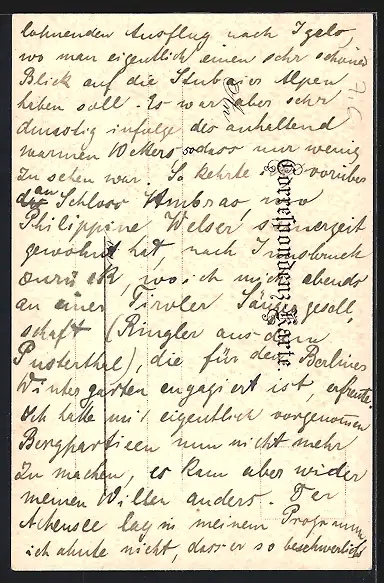 lohnenden Ausflug nach Igels,
wo man eigentlich einen sehr schönen
Blick auf die Stubaier Alpen
haben soll. Es war aber sehr
dunstig infolge des anhaltend
warmen Wetters, sodass nur wenig
zu sehen war. So kehrte vorüber
an Schloss Ambras, wo
Philippine Welser seinerzeit
gewohnt hat, nach Innsbruck
zurück, wo ich mich abends
an einer Tiroler Sängergesell,
schaft (Ringler aus dem
Pusterthal), die für den Berliner
Wintergarten engagiert ist, erfreute.
Ich hatte mir eigentlich vorgenommen
Bergpartieen nun nicht mehr
zu machen, es kam aber wider
meinen Willen anders. Der
Achensee lag in meinem Programm,
ich ahnte nicht, dass er so beschwerlich
Correspondenz-Karte